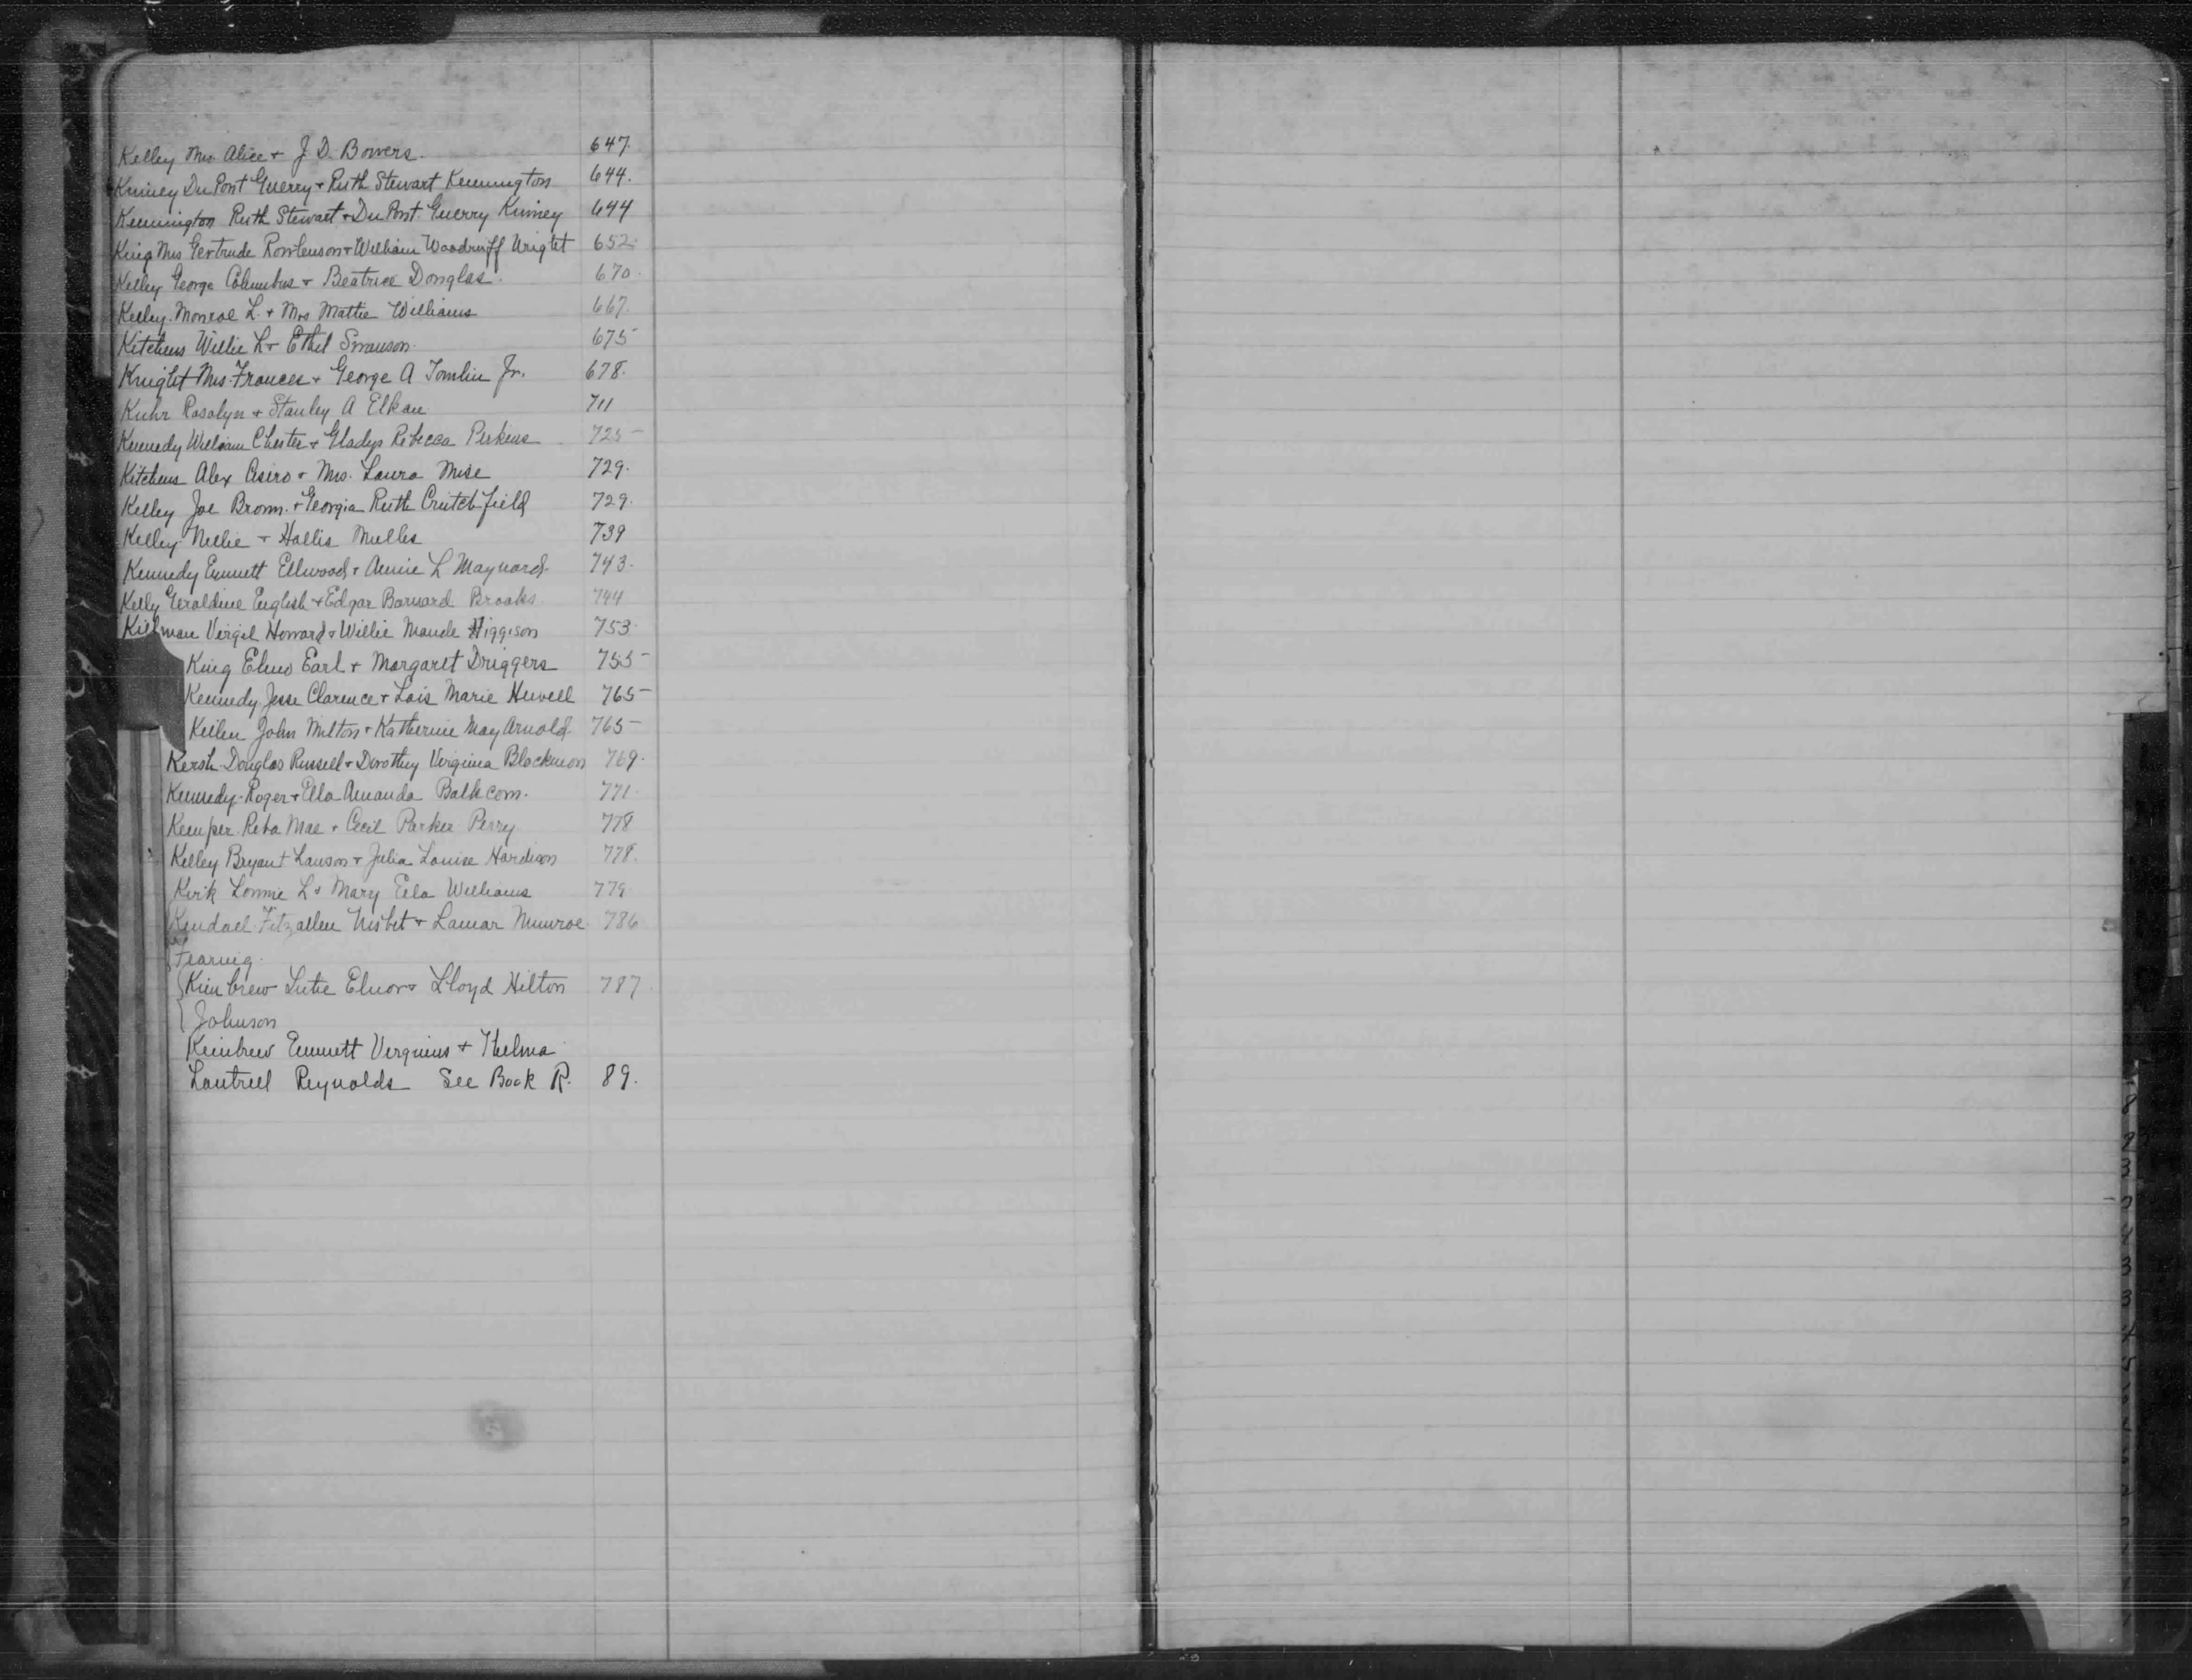 Kelley Mrs. Alice + J. D. Bowers. 647.
Kimsey DuPont Guerry + Ruth Stewart Kennington 644.
Kennington Ruth Stewart + DuPont Guerry Kimsey 644
King Mrs Gertrude Rowlenson + William Woodruff Wright 652.
Kelley George Columbus + Beatrice Douglas. 670.
Kelley Monroe L. + Mrs Mattie Williams 667.
Kitchens Willie L + Ethel Swanson. 675
Knight Mrs Frances + George A Tomlin Jr. 678.
Kuhr Rosalyn + Stanley A Elkan 711
Kennedy William Chester + Gladys Rebecca Perkins 725
Kitchens Alex + Mrs. Laura Mise 729.
Kelley Joe Brown + Georgia Ruth Crutchfield 729.
Kelley Nellie + Hollis Mullis 739
Kennedy Emmett Ellwood + Annie L Maynard 743.
Kelly Geraldine English + Edgar Barnard Brooks. 744
Killman Virgil Howard + Willie Maude Higgison 753.
King Elmo Earl + Margaret Driggers 755
Kennedy Jesse Clarence + Lois Marie Hewell 765
Keilen John Milton + Katherine May Arnold 765
Kersh Douglas Russell + Dorothy Virginia Blackmon 769.
Kennedy Roger + Ella Amanda Balkcom. 771.
Kemper Reba Mae + Cecil Parker Perry 778
Kelley Bryant Lawson + Julia Louise Hardison 778.
Kirk Lonnie L + Mary Ella Williams 779.
Kendall Fitzallen Nisbet + Lamar Munroe 786
Fearnig.
Kimbrew Lutie Elnor + Lloyd Hilton 787.
Johnson
Kimbrew Emmett Verginius + Thelma
Lautrell Reynolds See Book R. 89.